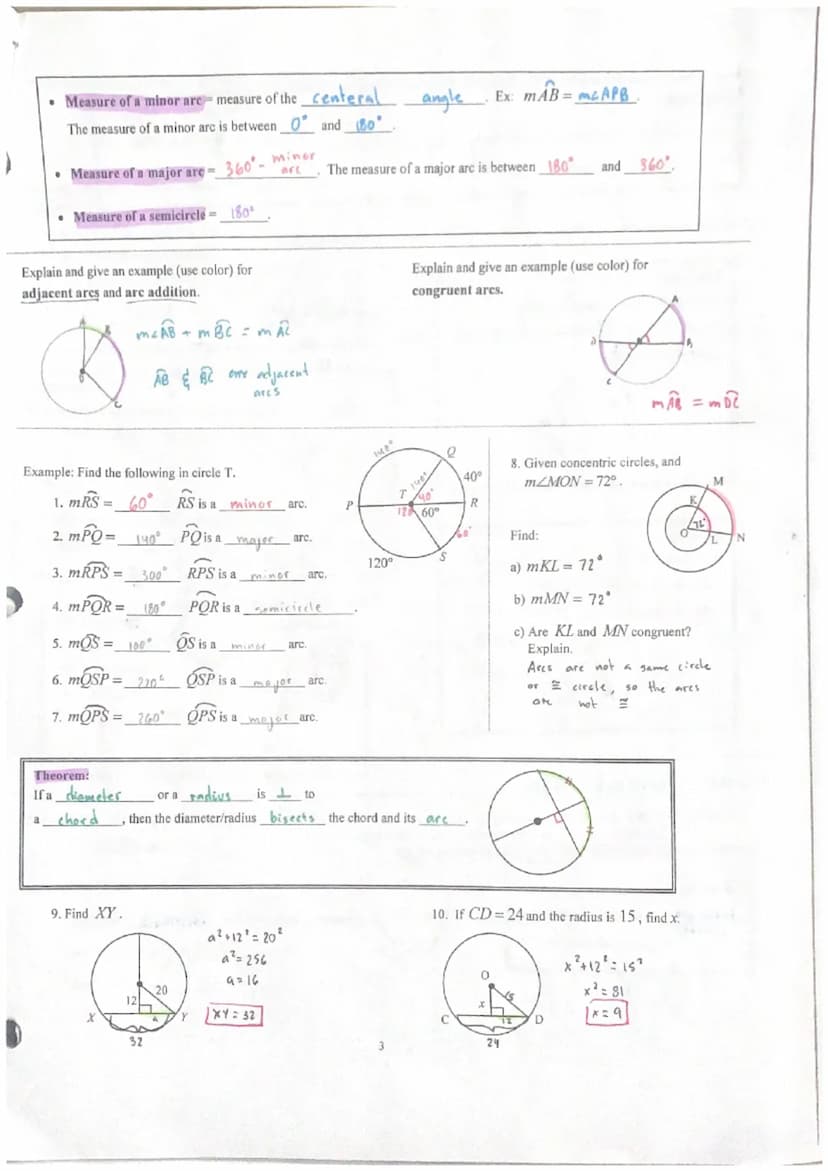 • Measure of a minor arc = measure of the centeral angle . Ex: mAB = m∠APB .
The measure of a minor arc is between 0° and 180° .
• Measure of a major arc = 360° - minor arc . The measure of a major arc is between 180° and 360° .
• Measure of a semicircle = 180° .
Explain and give an example (use color) for
adjacent arcs and arc addition.
A
B
C
m∠AB + mBC = mAC
AB & BC are adjacent
arcs
Explain and give an example (use color) for
congruent arcs.
A
D
B
C
mAB = mDC
Example: Find the following in circle T.
1. mRS = 60° RS is a minor arc.
2. mPQ = 140° PQ is a major arc.
3. mRPS = 300° RPS is a minor arc.
4. mPQR = 180° PQR is a semicircle .
5. mQS = 100° QS is a minor arc.
6. mQSP = 220° QSP is a major arc.
7. mQPS = 260° QPS is a major arc.
140°
Q
140°
40°
T
40°
P
R
180
60°
60°
120°
S
8. Given concentric circles, and
m∠MON = 72° .
M
K
72°
O
L
N
Find:
a) mKL = 72°
b) mMN = 72°
c) Are KL and MN congruent?
Explain.
Arcs are not a same circle
or ≅ circle, so the arcs
are not ≅
Theorem:
If a diameter or a radius is ⊥ to
a chord , then the diameter/radius bisects the chord and its arc .
9. Find XY .
20
12
a
X
Y
32
a²+12²= 20²
a²= 256
a= 16
XY = 32
10. If CD = 24 and the radius is 15 , find x.
O
15
x
C
12
D
24
x²+12²= 15²
x²= 81
x= 9
3